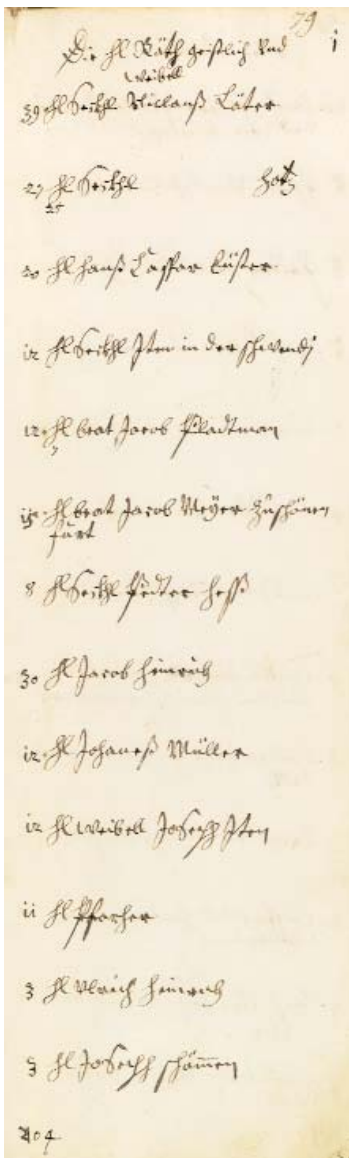 79
i
Die hl Räth geistlich vnd
weibell
39 hl Seckhl Niclauß Läter
27 hl Seckhl Hotz
25
20 hl hanß Caspar Lüster
12 hl Seckhl Iten in der schwendj
12 hl beat Jacob Pladtman
7
15 hl beat Jacob Meÿer Zuschönen
furt
8 hl Seckhl Pedter heß
30 hl Jacob heinrich
12 hl Johaneß Müller
12 hl weibell Joseph Iten
ii hl Pfarher
3 hl Vlrich heinrich
3 hl Joseph schömen
204